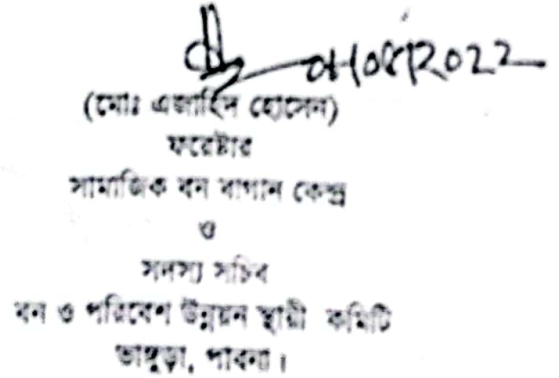 01/08/2022
(মোঃ এজাহিদ হোসেন)
ফরেষ্টার
সামাজিক বন বাগান কেন্দ্র
ও
সদস্য সচিব
বন ও পরিবেশ উন্নয়ন স্থায়ী কমিটি
ভাঙ্গুড়া, পাবনা।